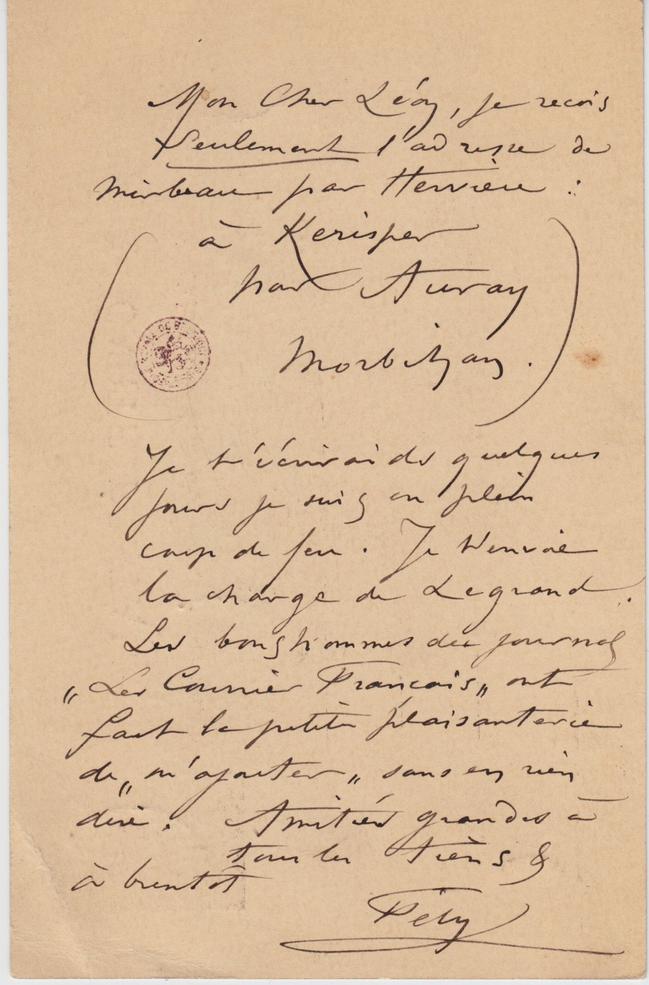 Mon Cher Léon, je reçois
seulement l'adresse de
Mirbeau par Hervieu :
à Kerisper
par Auray
Morbihan.
Je t'écrirai ds quelques
jours je suis en plein
coup de feu. Je t'envoie
la charge de Legrand.
Les bonshommes du journal
"Le Courrier Français" ont
fait la petite plaisanterie
de "m'ajouter" sans en rien
dire. Amitiés grandes à
tous les tiens &
à bientôt
Fély